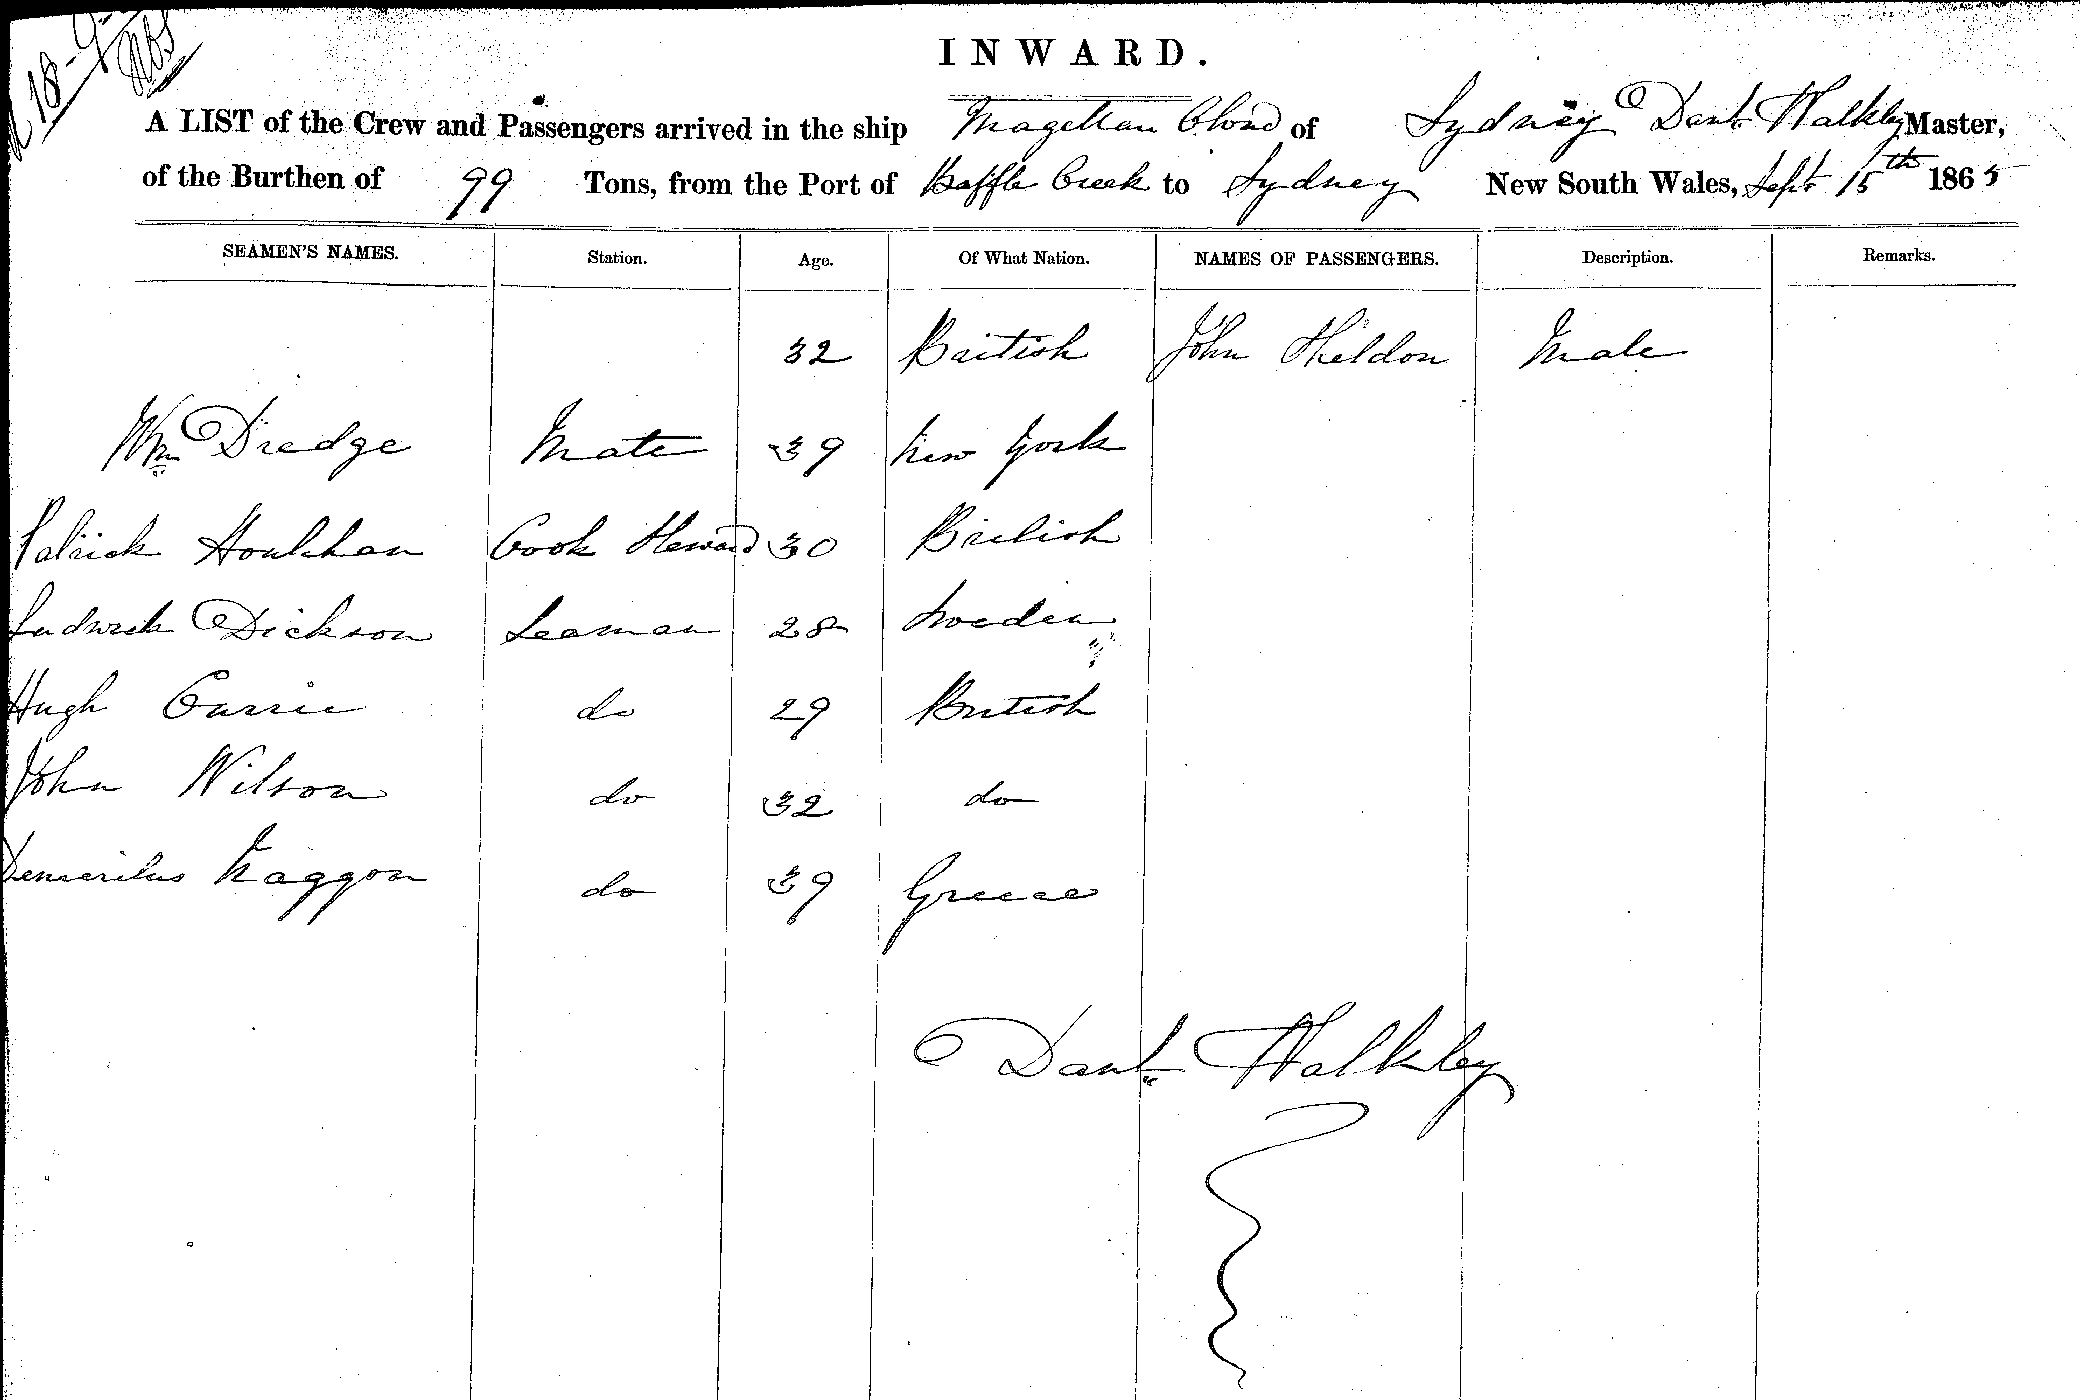 18-9
INWARD.
A LIST of the Crew and Passengers arrived in the ship Magellan Cloud of Sydney Danl. Walkley Master,
of the Burthen of 99 Tons, from the Port of Baffle Creek to Sydney New South Wales, Sept 15th 1865
SEAMEN'S NAMES. Station. Age. Of What Nation. NAMES OF PASSENGERS. Description. Remarks.
32 British John Sheldon Male
Wm Dredge Mate 39 New York
Patrick Houlihan Cook Steward 30 British
Ludwick Dickson Seaman 28 Sweden
Hugh Currie do 29 British
John Wilson do 32 do
do 39 Greece
Danl. Walkley